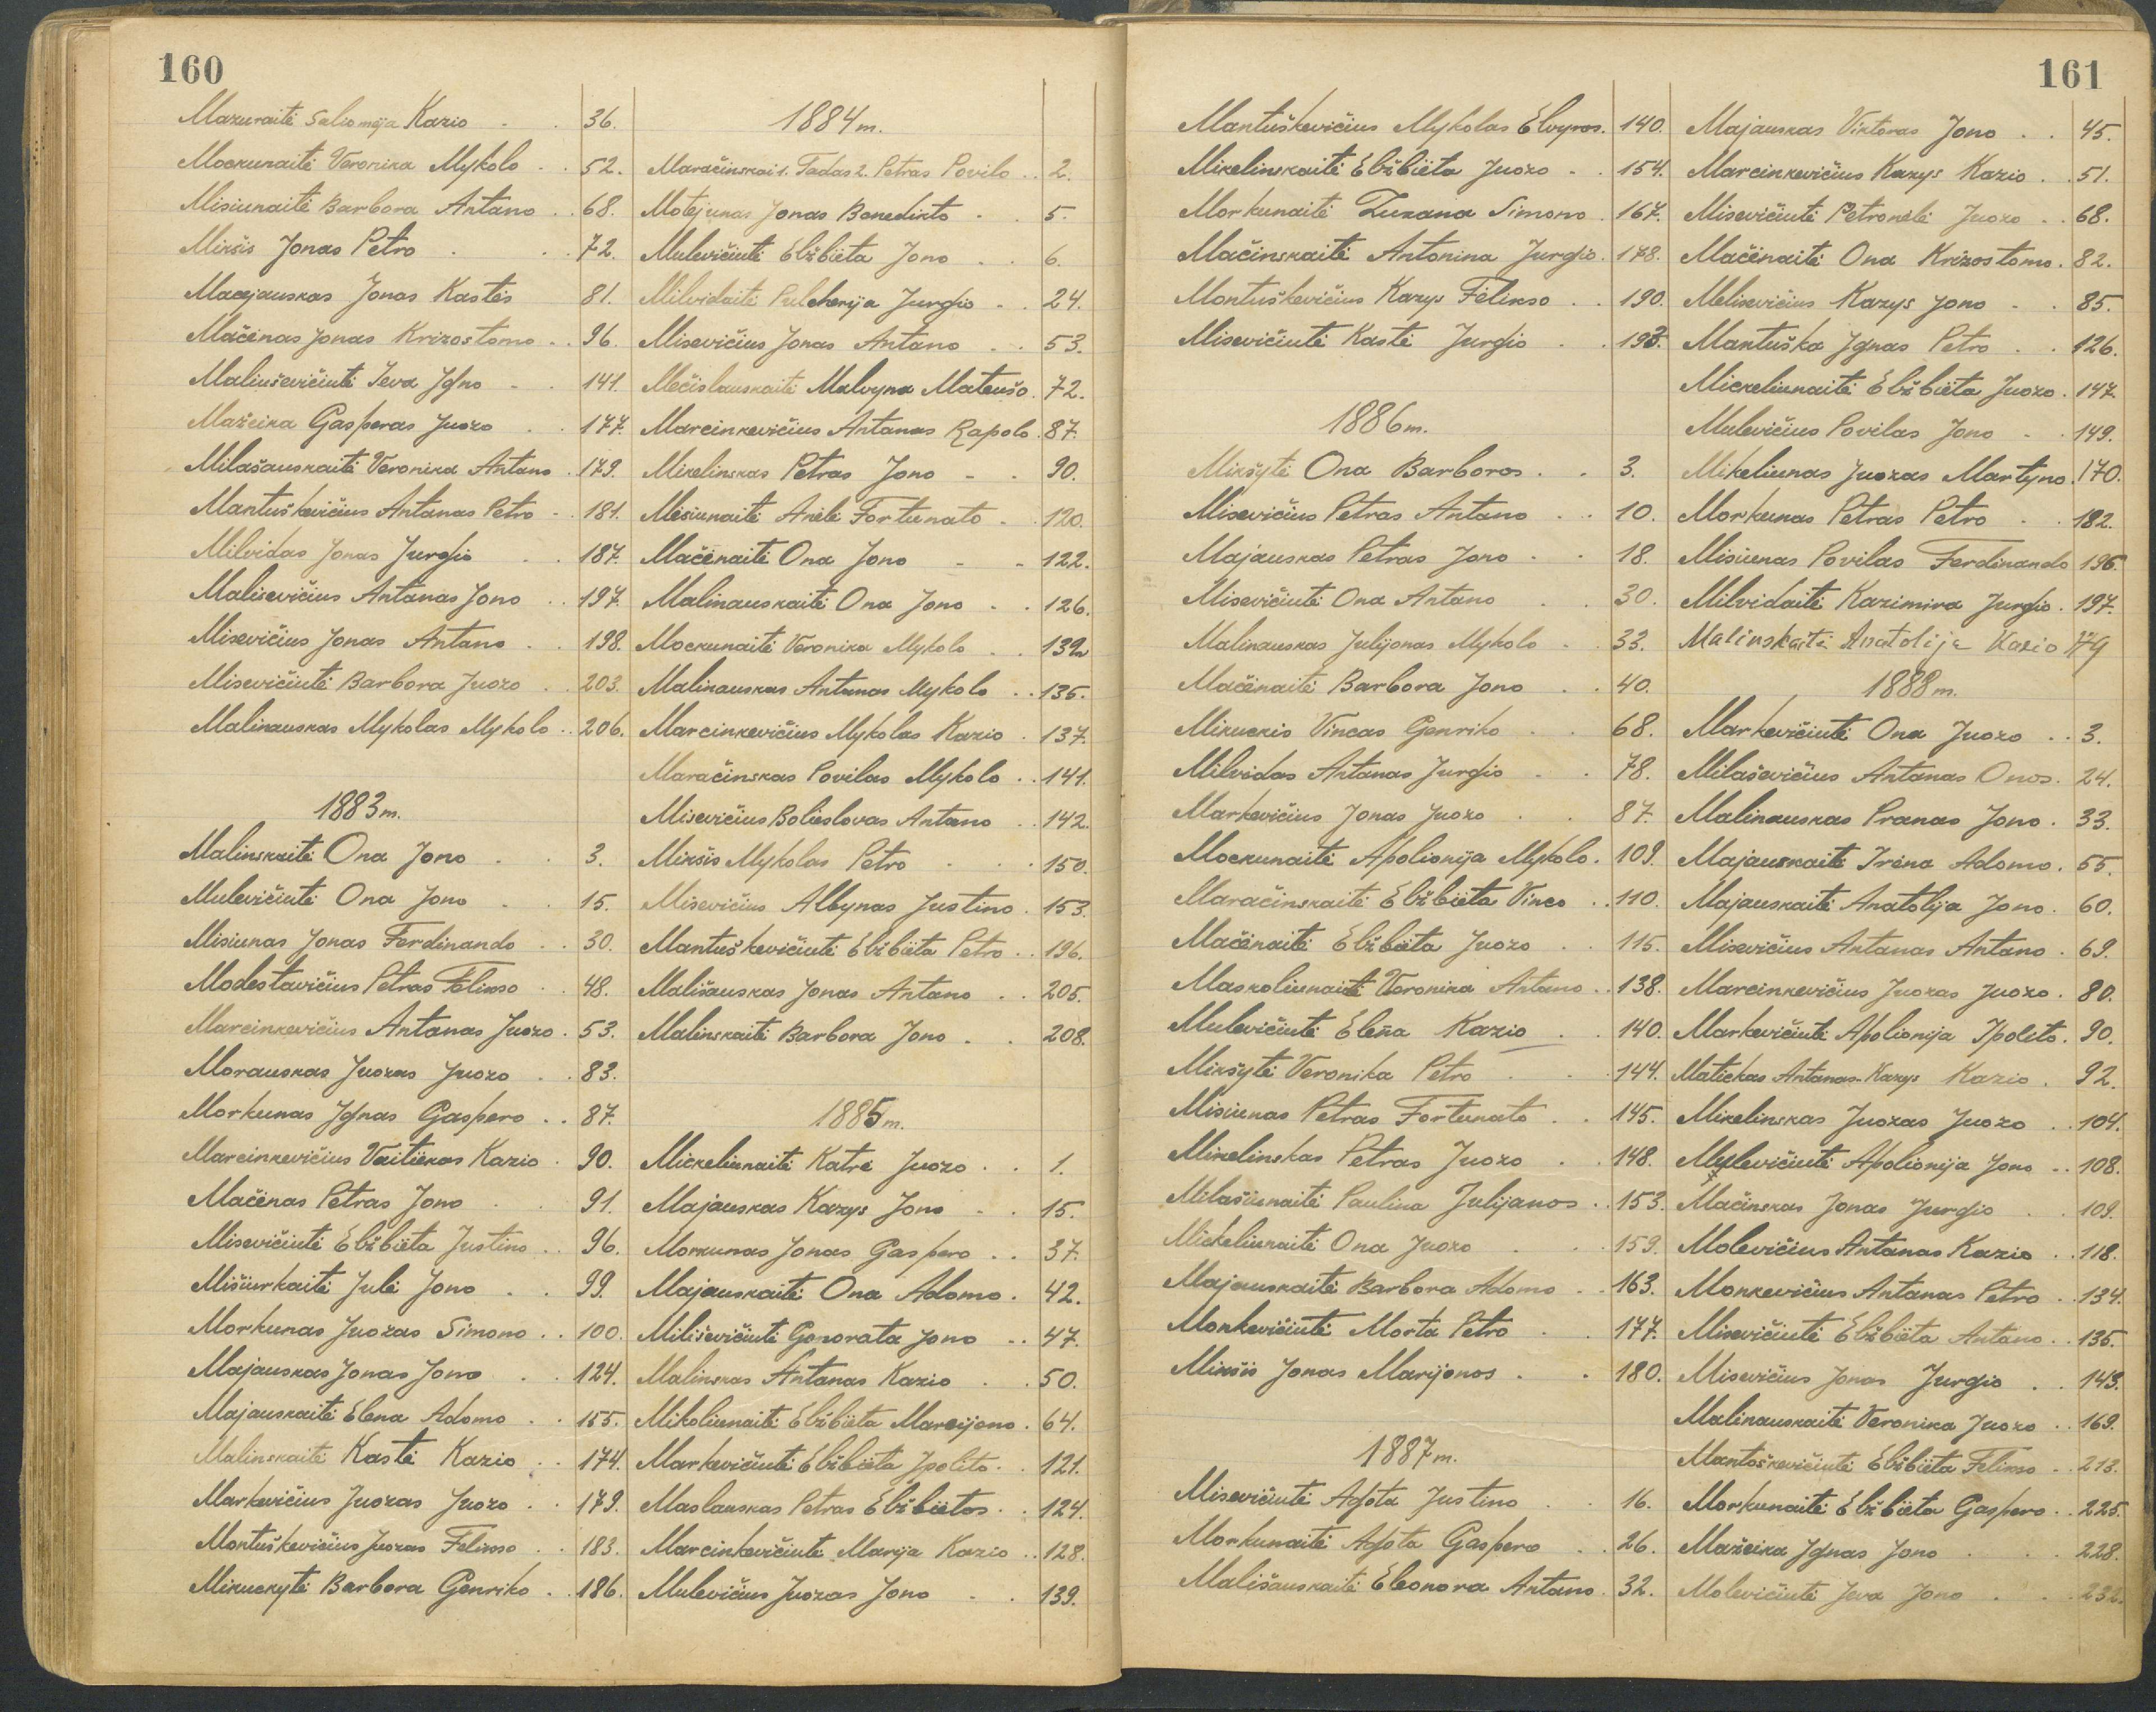 160
Mazuraitė Saliomėja Kazio . . 36.
Mockunaitė Veronika Mykolo . . 52.
Misiunaitė Barbora Antano . . 68.
Mikšis Jonas Petro . . . 72.
Macejauskas Jonas Kastės 81.
Mačėnas Jonas Krizostomo . . 96.
Maliuševičiutė Ieva Igno . . 141.
Mažeika Gasperas Juozo . . 177.
Milašauskaitė Veronika Antano . 179.
Mantuškevičius Antanas Petro . 181.
Milvidas Jonas Jurgio . . 187.
Malisevičius Antanas Jono . . 197.
Misevičius Jonas Antano . . 198.
Misevičiutė Barbora Juozo . . 203.
Malinauskas Mykolas Mykolo . . 206.
1883 m.
Malinskaitė Ona Jono . . 3.
Mulevičiutė Ona Jono . . 15.
Misiunas Jonas Ferdinando . . 30.
Modestavičius Petras Felikso . . 48.
Marcinkevičius Antanas Juozo . 53.
Morauskas Juozas Juozo . . 83.
Morkunas Ignas Gaspero . . 87.
Marcinkevičius Vaitiekas Kazio . 90.
Mačėnas Petras Jono . . 91.
Misevičiutė Elžbieta Justino . . 96.
Mišiurkaitė Julė Jono . . 99.
Morkunas Juozas Simono . . 100.
Majauskas Jonas Jono . . 124.
Majauskaitė Elena Adomo . . 155.
Malinskaitė Kastė Kazio . . 174.
Markevičius Juozas Juozo . . 179.
Montuškevičius Juozas Felikso . . 183.
Mikuckytė Barbora Genriko . . 186.
1884 m.
Maračinskai 1. Tadas 2. Petras Povilo . . 2.
Motejunas Jonas Benedikto . . 5.
Mulevičiutė Elžbieta Jono . . 6.
Milvidaitė Pulcherija Jurgio . . 24.
Misevičius Jonas Antano . . 53.
Mečislauskaitė Malvyna Mateušo . 72.
Marcinkevičius Antanas Rapolo . 87.
Mikelinskas Petras Jono . . 90.
Misiunaitė Anėlė Fortunato . . 120.
Mačėnaitė Ona Jono . . 122.
Malinauskaitė Ona Jono . . 126.
Mockunaitė Veronika Mykolo . . 132
Malinauskas Antanas Mykolo . . 135.
Marcinkevičius Mykolas Kazio . 137.
Maračinskas Povilas Mykolo . . 141.
Misevičius Bolieslovas Antano . . 142.
Mikšis Mykolas Petro . . . 150.
Misevičius Albynas Justino . 153.
Mantuškevičiutė Elžbieta Petro . . 196.
Mališauskas Jonas Antano . . 205.
Malinskaitė Barbora Jono . . 208.
1885 m.
Mickeliunaitė Katrė Juozo . . 1.
Majauskas Kazys Jono . . 15.
Morkunas Jonas Gaspero . . 37.
Majauskaitė Ona Adomo . 42.
Miliševičiutė Gonorata Jono . . 47.
Malinskas Antanas Kazio . . 50.
Mikoliunaitė Elžbieta Marcijono . 64.
Markevičiutė Elžbieta Ipolito . . 121.
Maslauskas Petras Elžbietos . . 124.
Marcinkevičiute Marija Kazio . . 128.
Mulevičius Juozas Jono . . 139.
161
Mantuškevičius Mykolas Elvyros . 140.
Mikelinskaitė Elžbieta Juozo . . 154.
Morkunaitė Zuzana Simono . 167.
Mačinskaitė Antonina Jurgio . 178.
Montuškevičius Kazys Felikso . . 190.
Misevičiutė Kastė Jurgio . . 193.
1886 m.
Mikšytė Ona Barboros . . 3.
Misevičius Petras Antano . . 10.
Majauskas Petras Jono . . 18.
Misevičiutė Ona Antano . . 30.
Malinauskas Julijonas Mykolo . 33.
Mačėnaitė Barbora Jono . . 40.
Mikuckis Vincas Genriko . . 68.
Milvidas Antanas Jurgio . . 78.
Markevičius Jonas Juozo . . 87.
Mockunaitė Apolionija Mykolo . 109.
Maračinskaitė Elžbieta Vinco . . 110.
Mačėnaitė Elžbieta Juozo . . 115.
Maskoliunaitė Veronika Antano . . 138.
Mulevičiutė Elena Kazio . . 140.
Mikšytė Veronika Petro . . 144.
Misiunas Petras Fortunato . . 145.
Mikelinskas Petras Juozo . . 148.
Milašiunaitė Paulina Julijanos . . 153.
Mickeliunaitė Ona Juozo . . . 159.
Majauskaitė Barbora Adomo . . 163.
Monkevičiutė Morta Petro . . 177.
Mikšis Jonas Marijonos . . 180.
1887 m.
Misevičiutė Agota Justino . . 16.
Morkunaitė Agota Gaspero . . 26.
Mališauskaitė Eleonora Antano . 32.
Majauskas Viktoras Jono . . 45.
Marcinkevičius Kazys Kazio . . 51.
Misevičiutė Petronėlė Juozo . . 68.
Mačėnaitė Ona Krizostomo . 82.
Melisevičius Kazys Jono . . 85.
Mantuška Ignas Petro . . 126.
Mickeliunaitė Elžbieta Juozo . 147.
Mulevičius Povilas Jono . . 149.
Mikeliunas Juozas Martyno . 170.
Morkunas Petras Petro . . 182.
Misiunas Povilas Ferdinando 196.
Milvidaitė Kazimira Jurgio . 197.
Malinskaitė Anatolija Kazio 179
1888 m.
Markevičiutė Ona Juozo . . 3.
Milaševičius Antanas Onos . 24.
Malinauskas Pranas Jono . 33.
Majauskaitė Irena Adomo . 55.
Majauskaitė Anatolija Jono . 60.
Misevičius Antanas Antano . 69.
Marcinkevičius Juozas Juozo . 80.
Markevičiutė Apolionija Ipolito . 90.
Matickas Antanas-Kazys Kazio . 92.
Mikelinskas Juozas Juozo . . 104.
Mulevičiutė Apolionija Jono . . 108.
Mačinskas Jonas Jurgio . . 109.
Molevičius Antanas Kazio . . 118.
Monkevičius Antanas Petro . . 134.
Misevičiutė Elžbieta Antano . . 135.
Misevičius Jonas Jurgio . . 143.
Malinauskaitė Veronika Juozo . . 169.
Mantoškevičiutė Elžbieta Felikso . . 213.
Morkunaitė Elžbieta Gaspero . . 225.
Mažeika Ignas Jono . . . 228.
Molevičiutė Ieva Jono . . . 232.